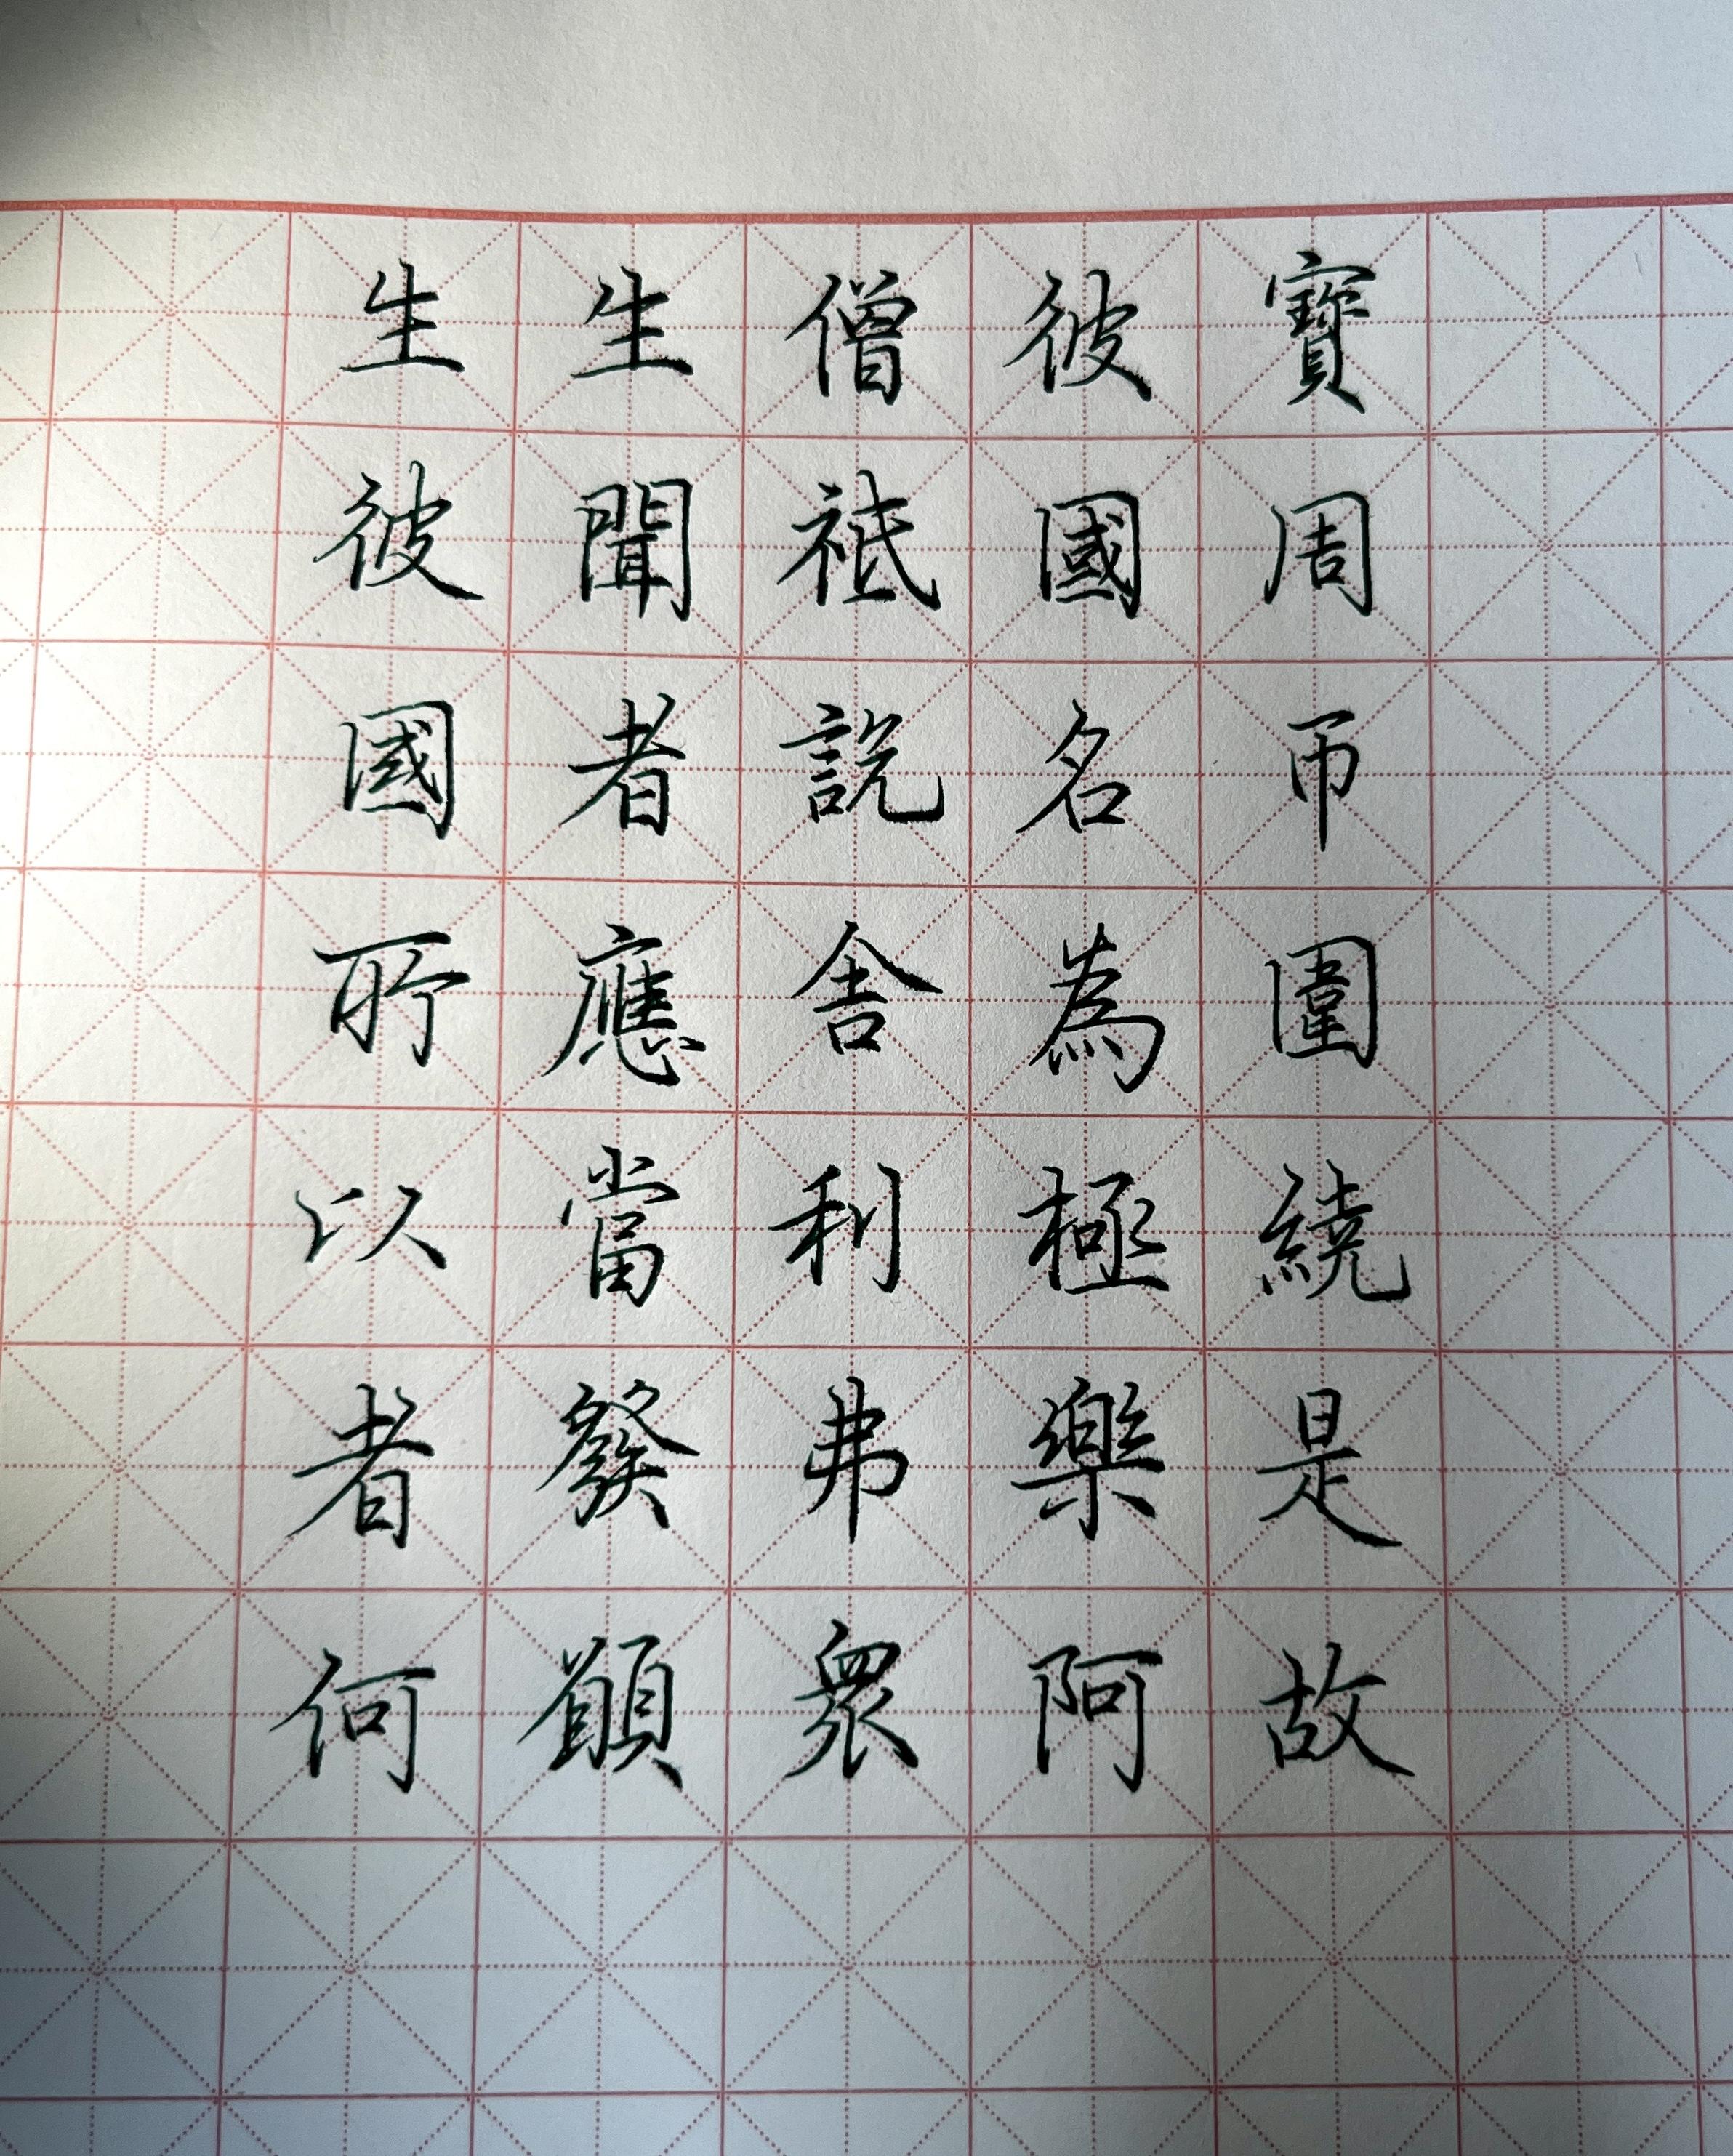 寶周帀圍繞是故
彼國名為極樂阿
僧祇說舍利弗眾
生聞者應當發願
生彼國所以者何